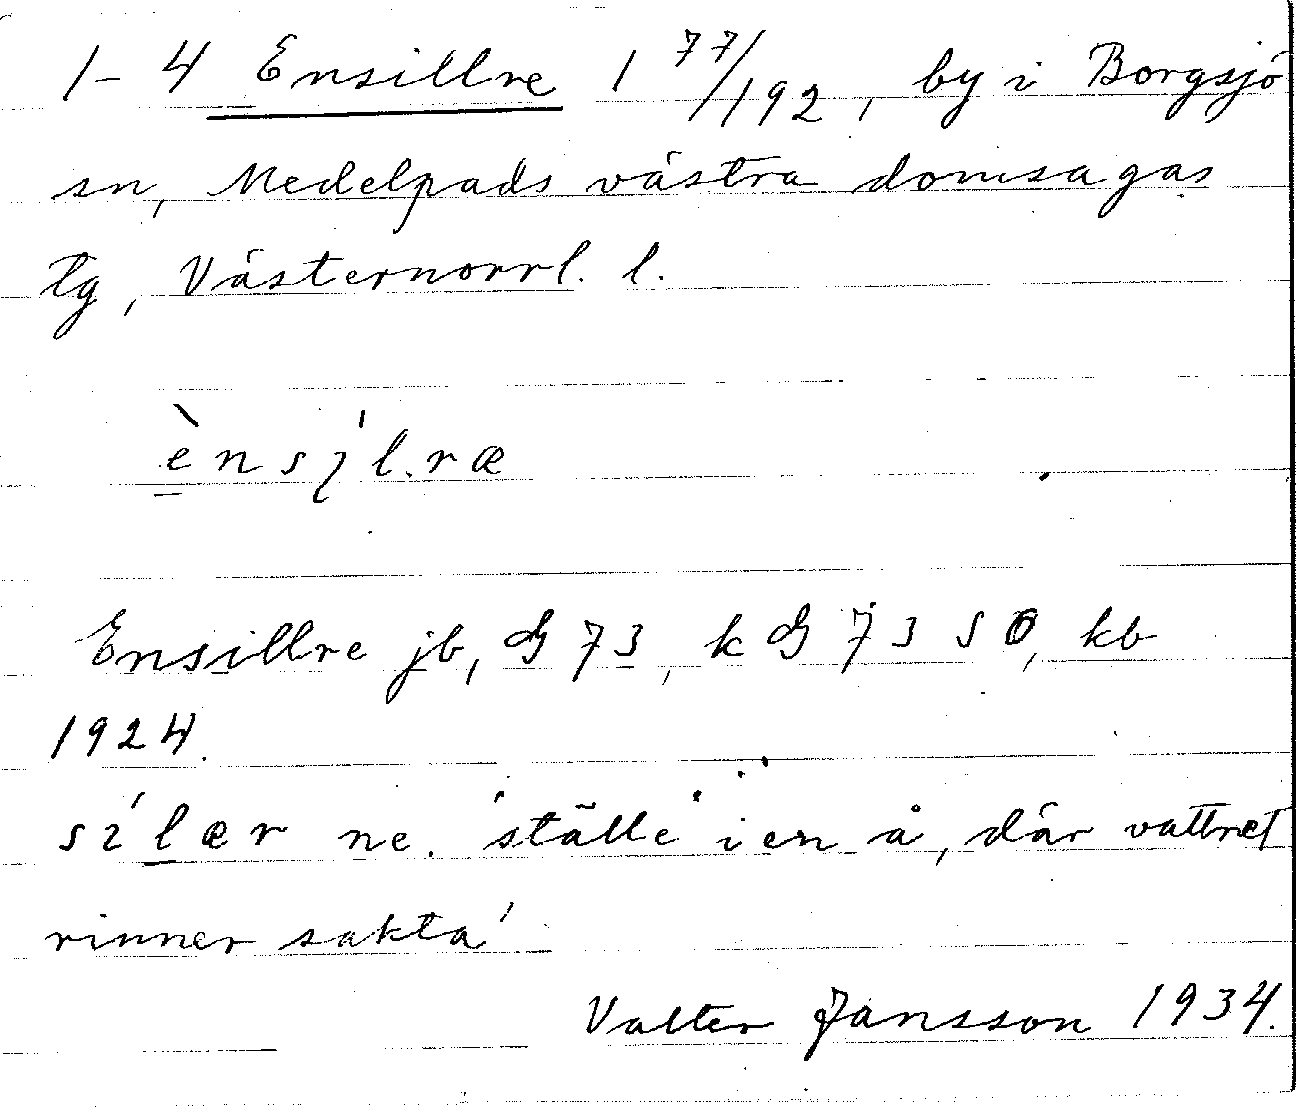 1-4 Ensillre 1 77/192, by i Borgsjö
sn, Medelpads västra domsagas
tg, Västernorrl. l.
ènsíl.ræ
Ensillre jb, G 73, k G 73 S O, kb
1924.
sílær ne. 'ställe i en å, där vattnet
rinner sakta'
Valter Jansson 1934.